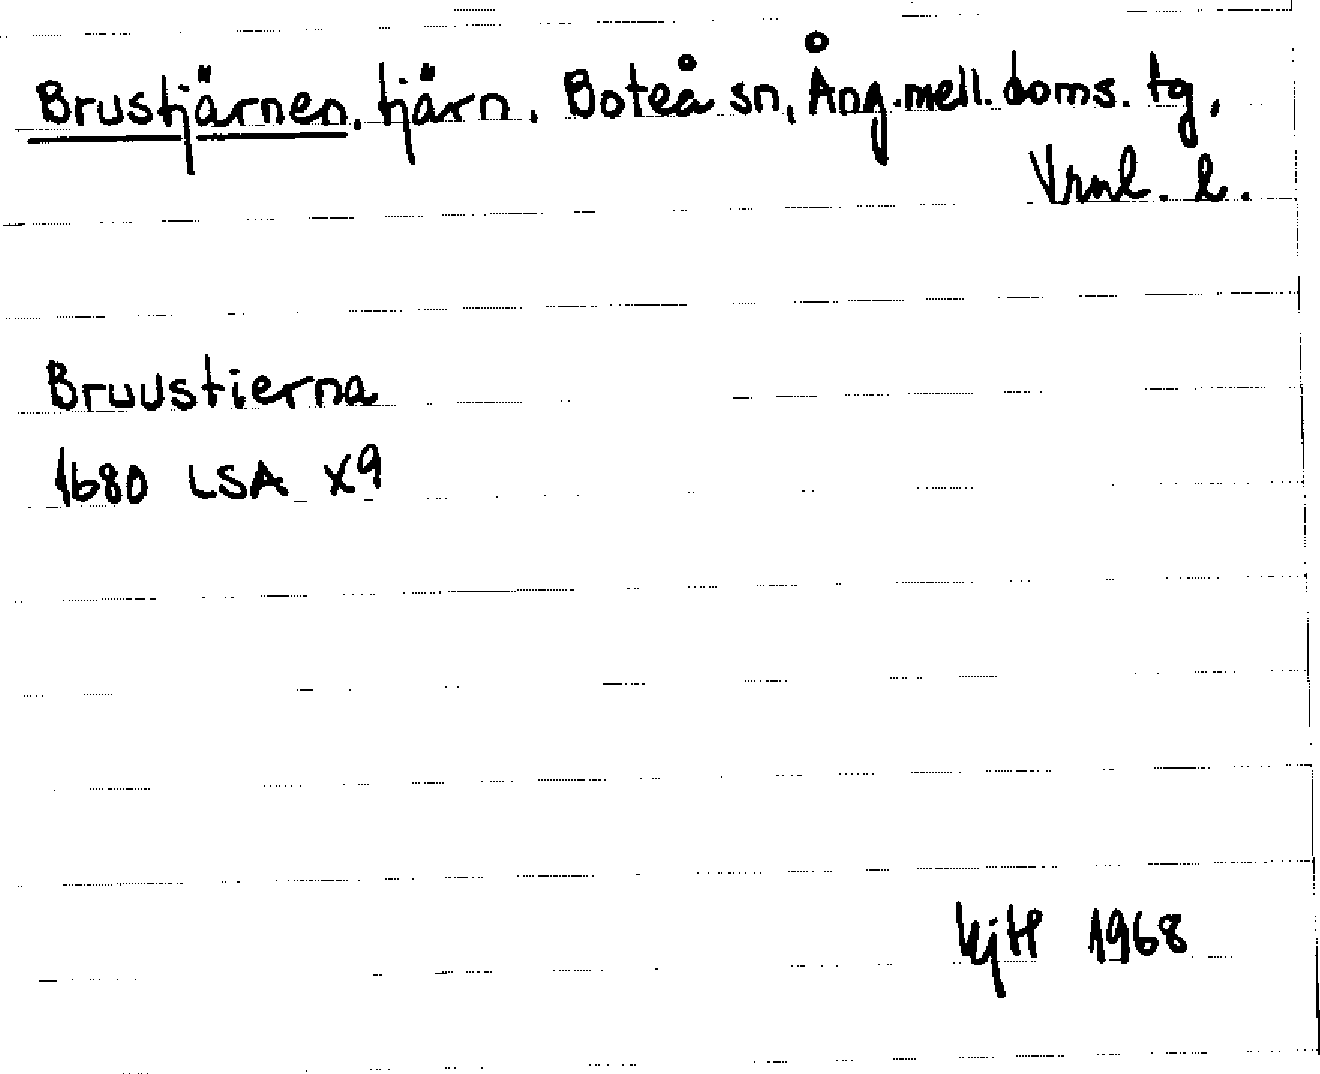 Brustjärnen, tjärn, Boteå sn, Ång.mell.doms. tg,
Vrnl. l.
Bruustierna
1680 LSA X9
kjH 1968